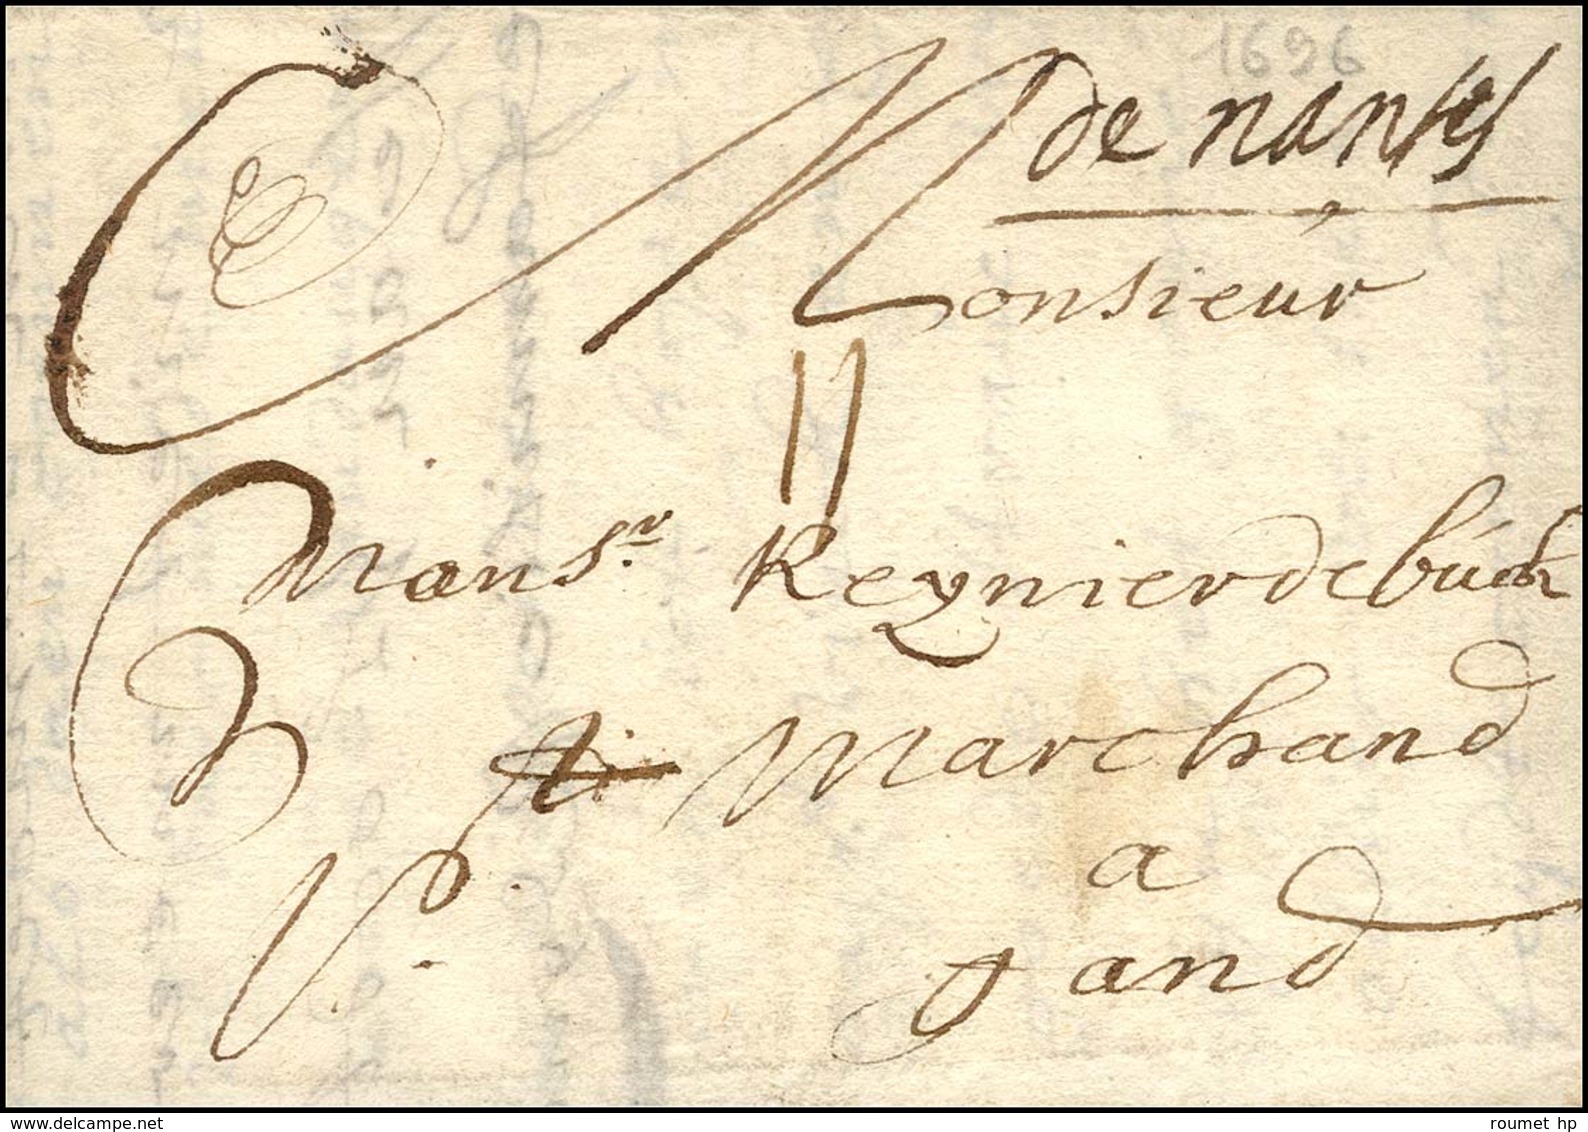 1696
de nantes
Monsieur
11
Monsr. Reynierdebuck
Marchand
a
Gand
roumet hp